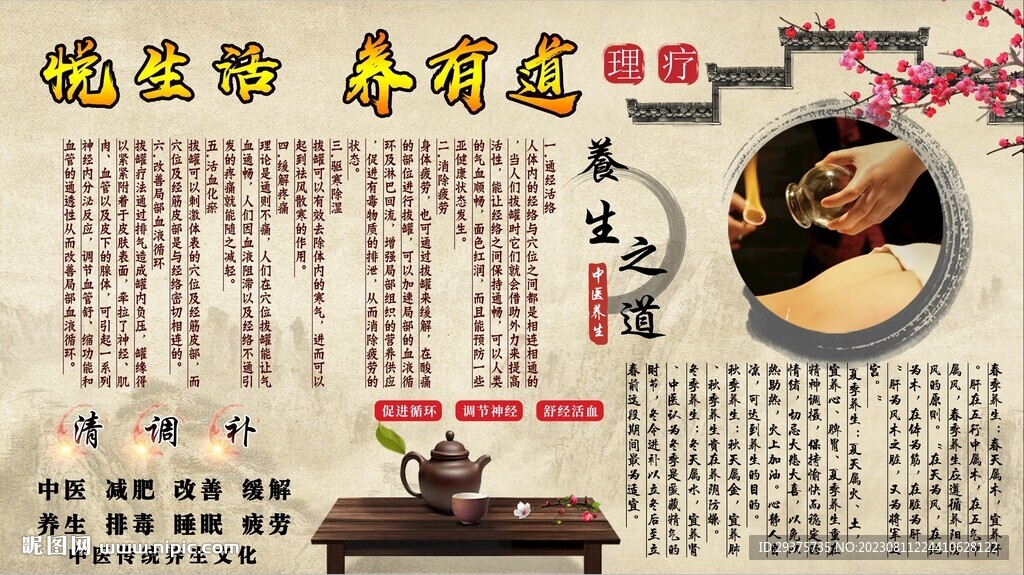 悦生活 养有道
理疗
养生之道
中医养生
一.通经活络
人体内的经络与穴位之间都是相连相通的
，当人们拔罐时它们就会借助外力来提高
活性，能让经络之间保持通畅，可以人类
的气血顺畅，面色红润，而且能预防一些
亚健康状态发生。
二.消除疲劳
身体疲劳，也可通过拔罐来缓解，在酸痛
的部位进行拔罐，可以加速局部的血液循
环及淋巴回流，增强局部组织的营养供应
，促进有毒物质的排泄，从而消除疲劳的
状态。
三.驱寒除湿
拔罐可以有效去除体内的寒气，进而可以
起到祛风散寒的作用。
四.缓解疼痛
理论是通则不痛，人们在穴位拔罐能让气
血通畅，人们因血液阻滞以及经络不通引
发的疼痛就能随之减轻。
五.活血化瘀
拔罐可以刺激体表的穴位及经筋皮部，而
穴位及经筋皮部是与经络密切相连的。
六.改善局部血液循环
拔罐疗法通过排气造成罐内负压，罐缘得
以紧紧附着于皮肤表面，牵拉了神经、肌
肉、血管以及皮下的腺体，可引起一系列
神经内分泌反应，调节血管舒、缩功能和
血管的通透性从而改善局部血液循环。
促进循环 调节神经 舒经活血
清 调 补
中医 减肥 改善 缓解
养生 排毒 睡眠 疲劳
中医传统养生文化
春季养生：春天属木，宜养
肝在五行中属木，在五气
属风，春季养生应遵循养阳
风的原则。“在天为风，在
为木，在体为筋，在脏为肝
”肝为风木之脏，又为将军
宫。”
夏季养生：夏天属火、土，
宜养心、脾胃、夏季养生重在
精神调摄，保持愉快而稳定
情绪，切忌大悲大喜，以免
热助热，火上加油。心静人自
凉，可达到养生的目的。
秋季养生：秋天属金，宜养肺
、秋季养生贵在养阴防燥。
冬季养生：冬天属水，宜养肾
、中医认为冬季是蛰藏精气的
时节，冬令进补以立冬后至立
春前这段期间最为适宜。
昵图网 www.nipic.com
ID:29375735 NO:20230811224410628122